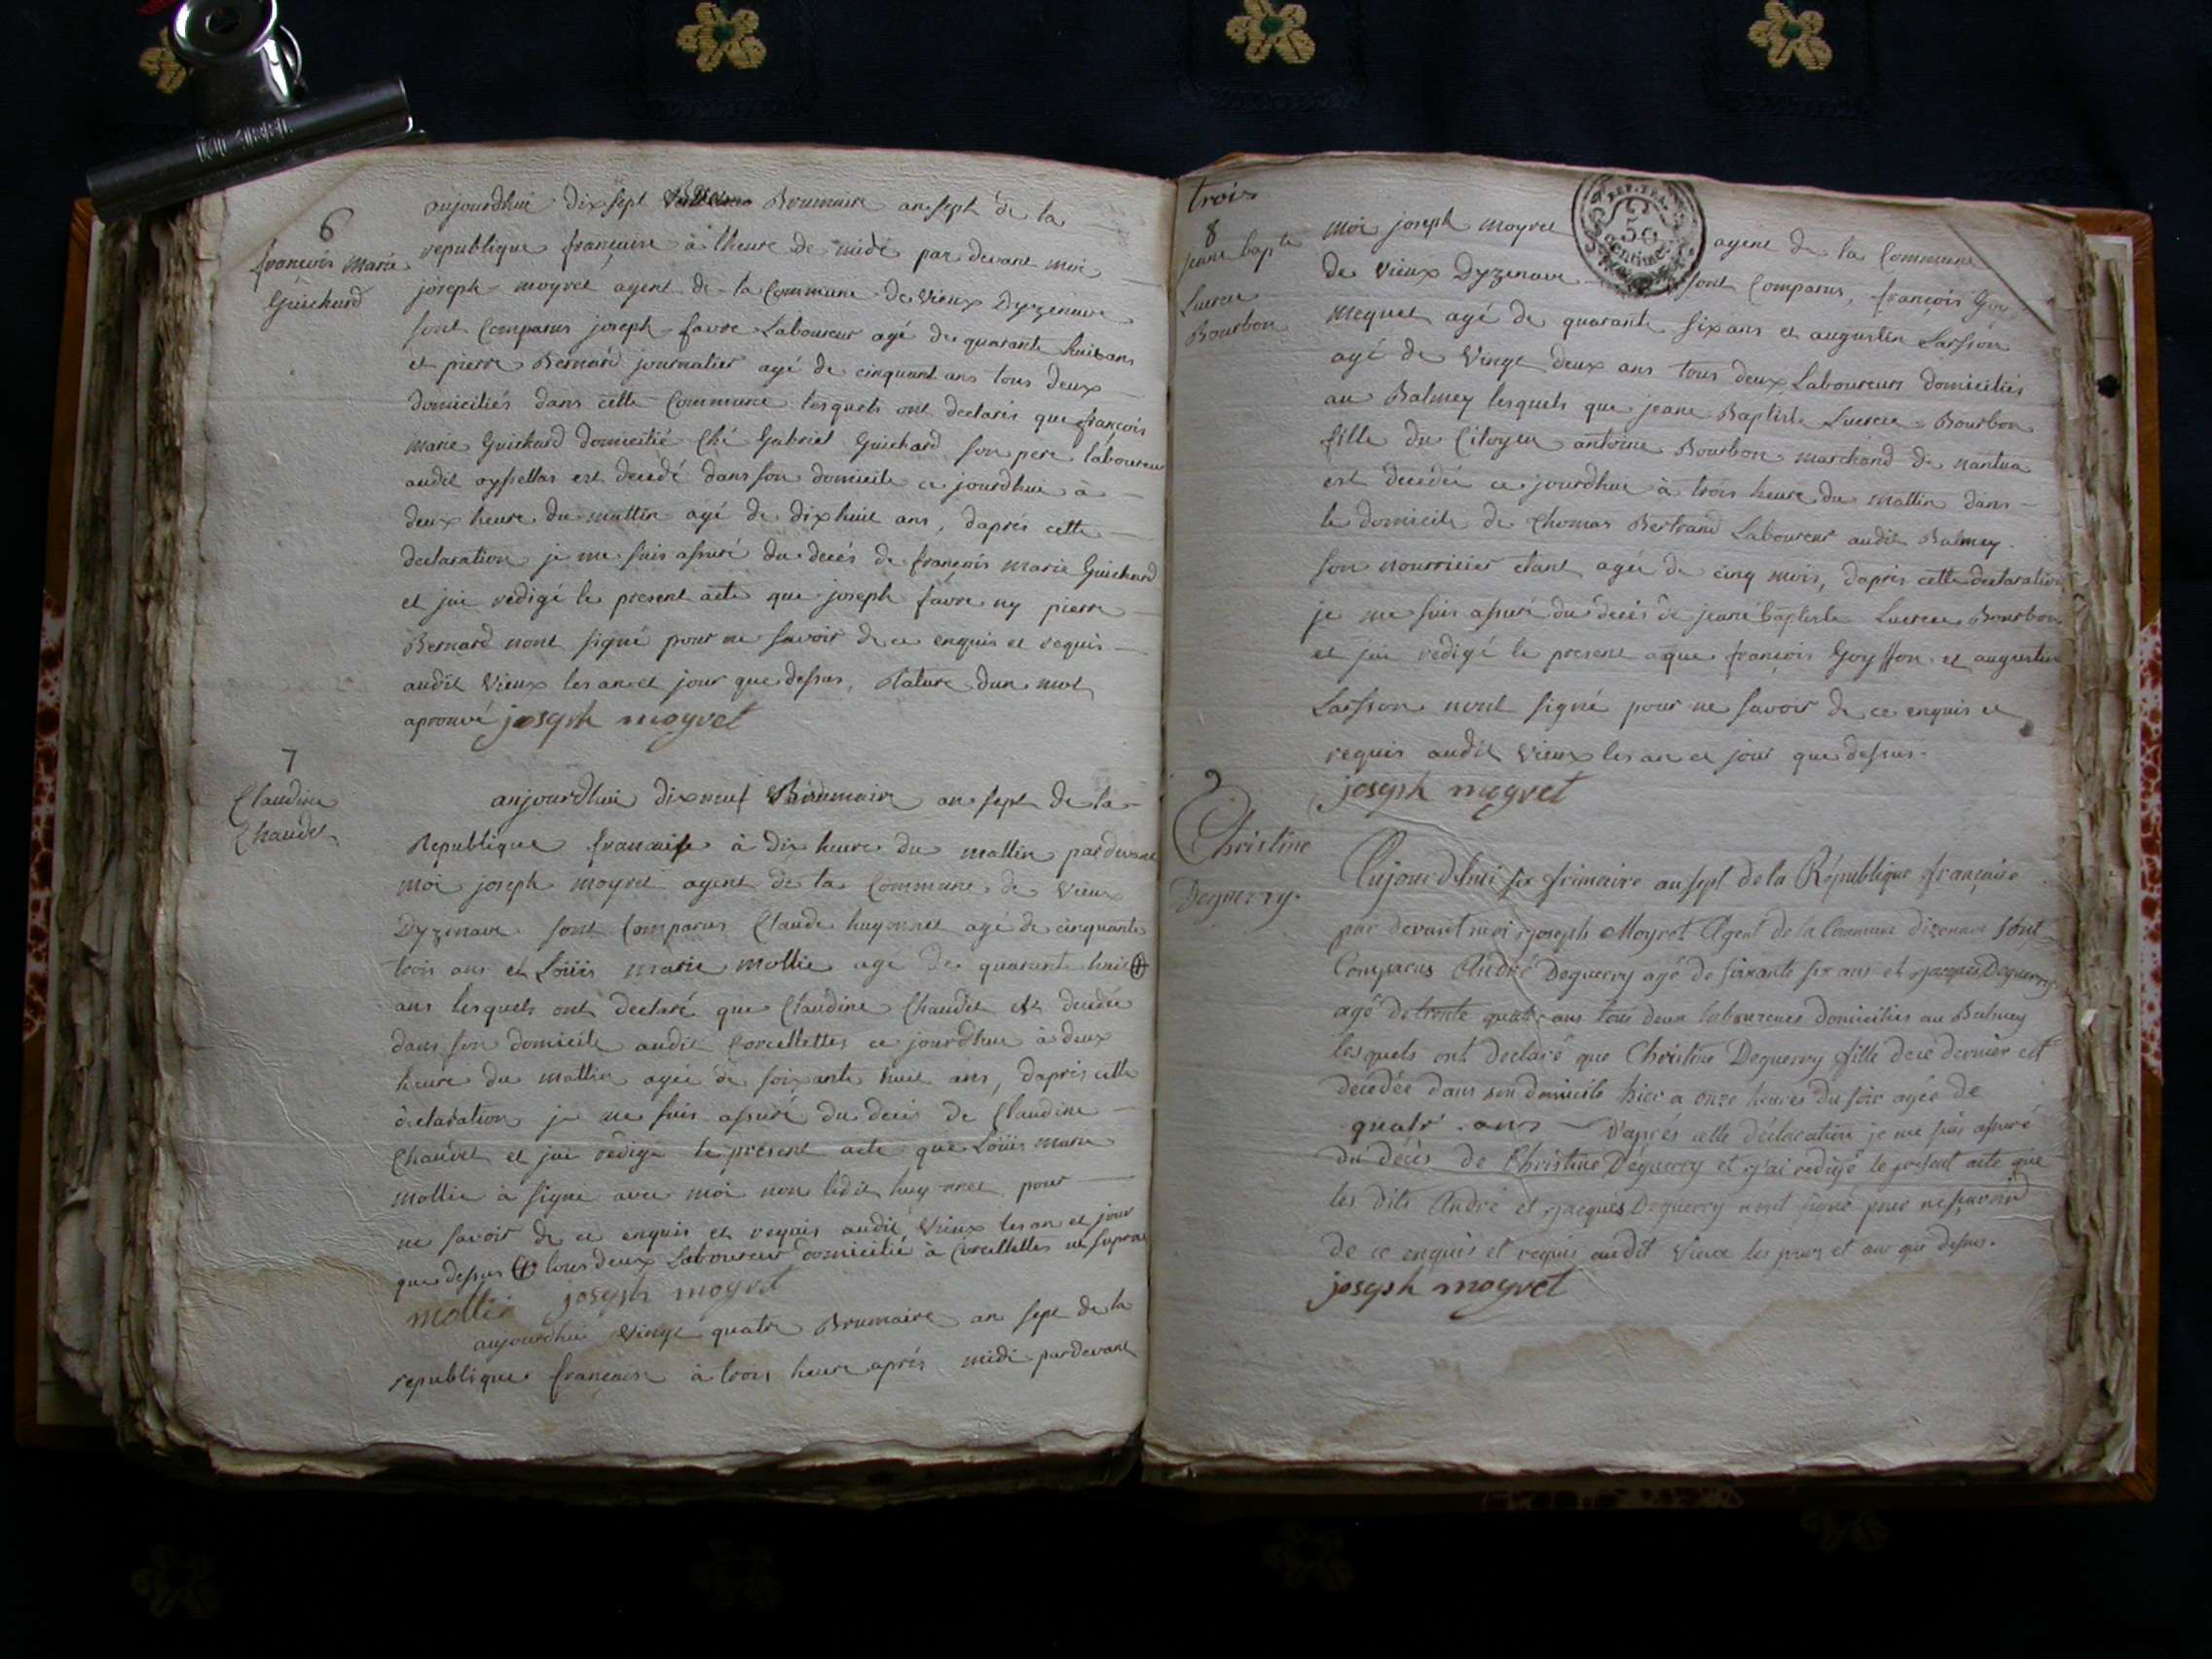 6
françois marie
Guichard
aujourdhui dix sept Brumaire an sept de la
republique française à lheure de midi par devant moi
joseph moyret agent de la Commune de Vieux Dyzenave
sont Comparus joseph favre Laboureur agé de quarante huit ans
et pierre Bernard journalier agé de cinquant ans tous deux
domiciliés dans cette Commune lesquels ont declarés que françois
marie Guichard domicilié Ché Gabriel Guichard son pere laboureur
audit oyssellas est decedé dans son domicile ce jourdhui à
deux heure du mattin agé de dixhuit ans, daprés cette
declaration je me suis assuré du decés de françois marie Guichard
et jai redigé le present acte que joseph favre ny pierre
Bernard nont signé pour ne savoir de ce enquis et requis
audit Vieux les an et jour que dessus, Rature dun mot
aprouvé joseph moyret
7
Claudine
Chaudet
aujourdhui dixneuf Brumaire an sept de la
Republique francaise à dix heure du mattin pardevant
moi joseph moyret agent de la Commune de Vieux
Dyzenave sont Comparus Claude huyonnet agé de cinquante
trois ans et Loüis marie mollie agé de quarante huit ⊕
ans lesquels ont declaré que Claudine Chaudet est decedée
dans son domicile audit Corcellettes ce jourdhui à deux
heure du mattin agée de soixante huit ans, daprés cette
declaration je me suis assuré du decés de Claudine
Chaudet et jai redigé le present acte que Loüis marie
mollie à signé avec moi non ledit huyonnet pour
ne savoir de ce enquis et requis audit Vieux les an et jour
que dessus ⊕ tous deux Laboureur domicilié à Corcellettes
mollie joseph moyret
aujourdhui Vingt quatre Brumaire an sept de la
republique francaise à trois heure aprés midi pardevant
trois
8
jeane bapte
Lucrece
Bourbon
REP. FRA.
50
centimes
moi joseph moyret agent de la Commune
de Vieux Dyzenave sont Comparus, françois Goy
agé de quarante six ans et augustin Lasson
agé de Vingt deux ans tous deux Laboureurs domiciliés
au Balmey lesquels que jeane Baptiste Lucrece Bourbon
fille du Citoyen antoine Bourbon marchand de nantua
est decedée ce jourdhui à trois heure du mattin dans
le domicile de Thomas Bertrand Laboureur audit Balmey
son nourricier etant agée de cinq mois, daprés cette declaration
je me suis assuré du decés de jeane baptiste Lucrece Bourbon
et jai redigé le present a que françois Goyffon et augustin
Lasson nont signé pour ne savoir de ce enquis et
requis audit Vieux les an et jour que dessus.
joseph moyret
9
Christine
Deguerry.
Aujourdehui six frimaire an sept de la République française
par devant moi joseph Moyret Agent de la Commune dizenave sont
Comparus André Deguerry agé de soixante six ans et jacques Deguerry
agé de trente quatre ans tous deux laboureurs domiciliés au Balmey
lesquels ont declaré que Christine Deguerry fille de ce dernier est
décédée dans son domicile hier a onze heures du soir agée de
quatr ans D'aprés cette déclaration je me suis assuré
du décés de Christine Déguerry et j'ai redigé le present acte que
les dits André et jacques Déguerry n'ont signé pour ne savoir
de ce enquis et requis audit Vieux les jour et an que dessus.
joseph moyret